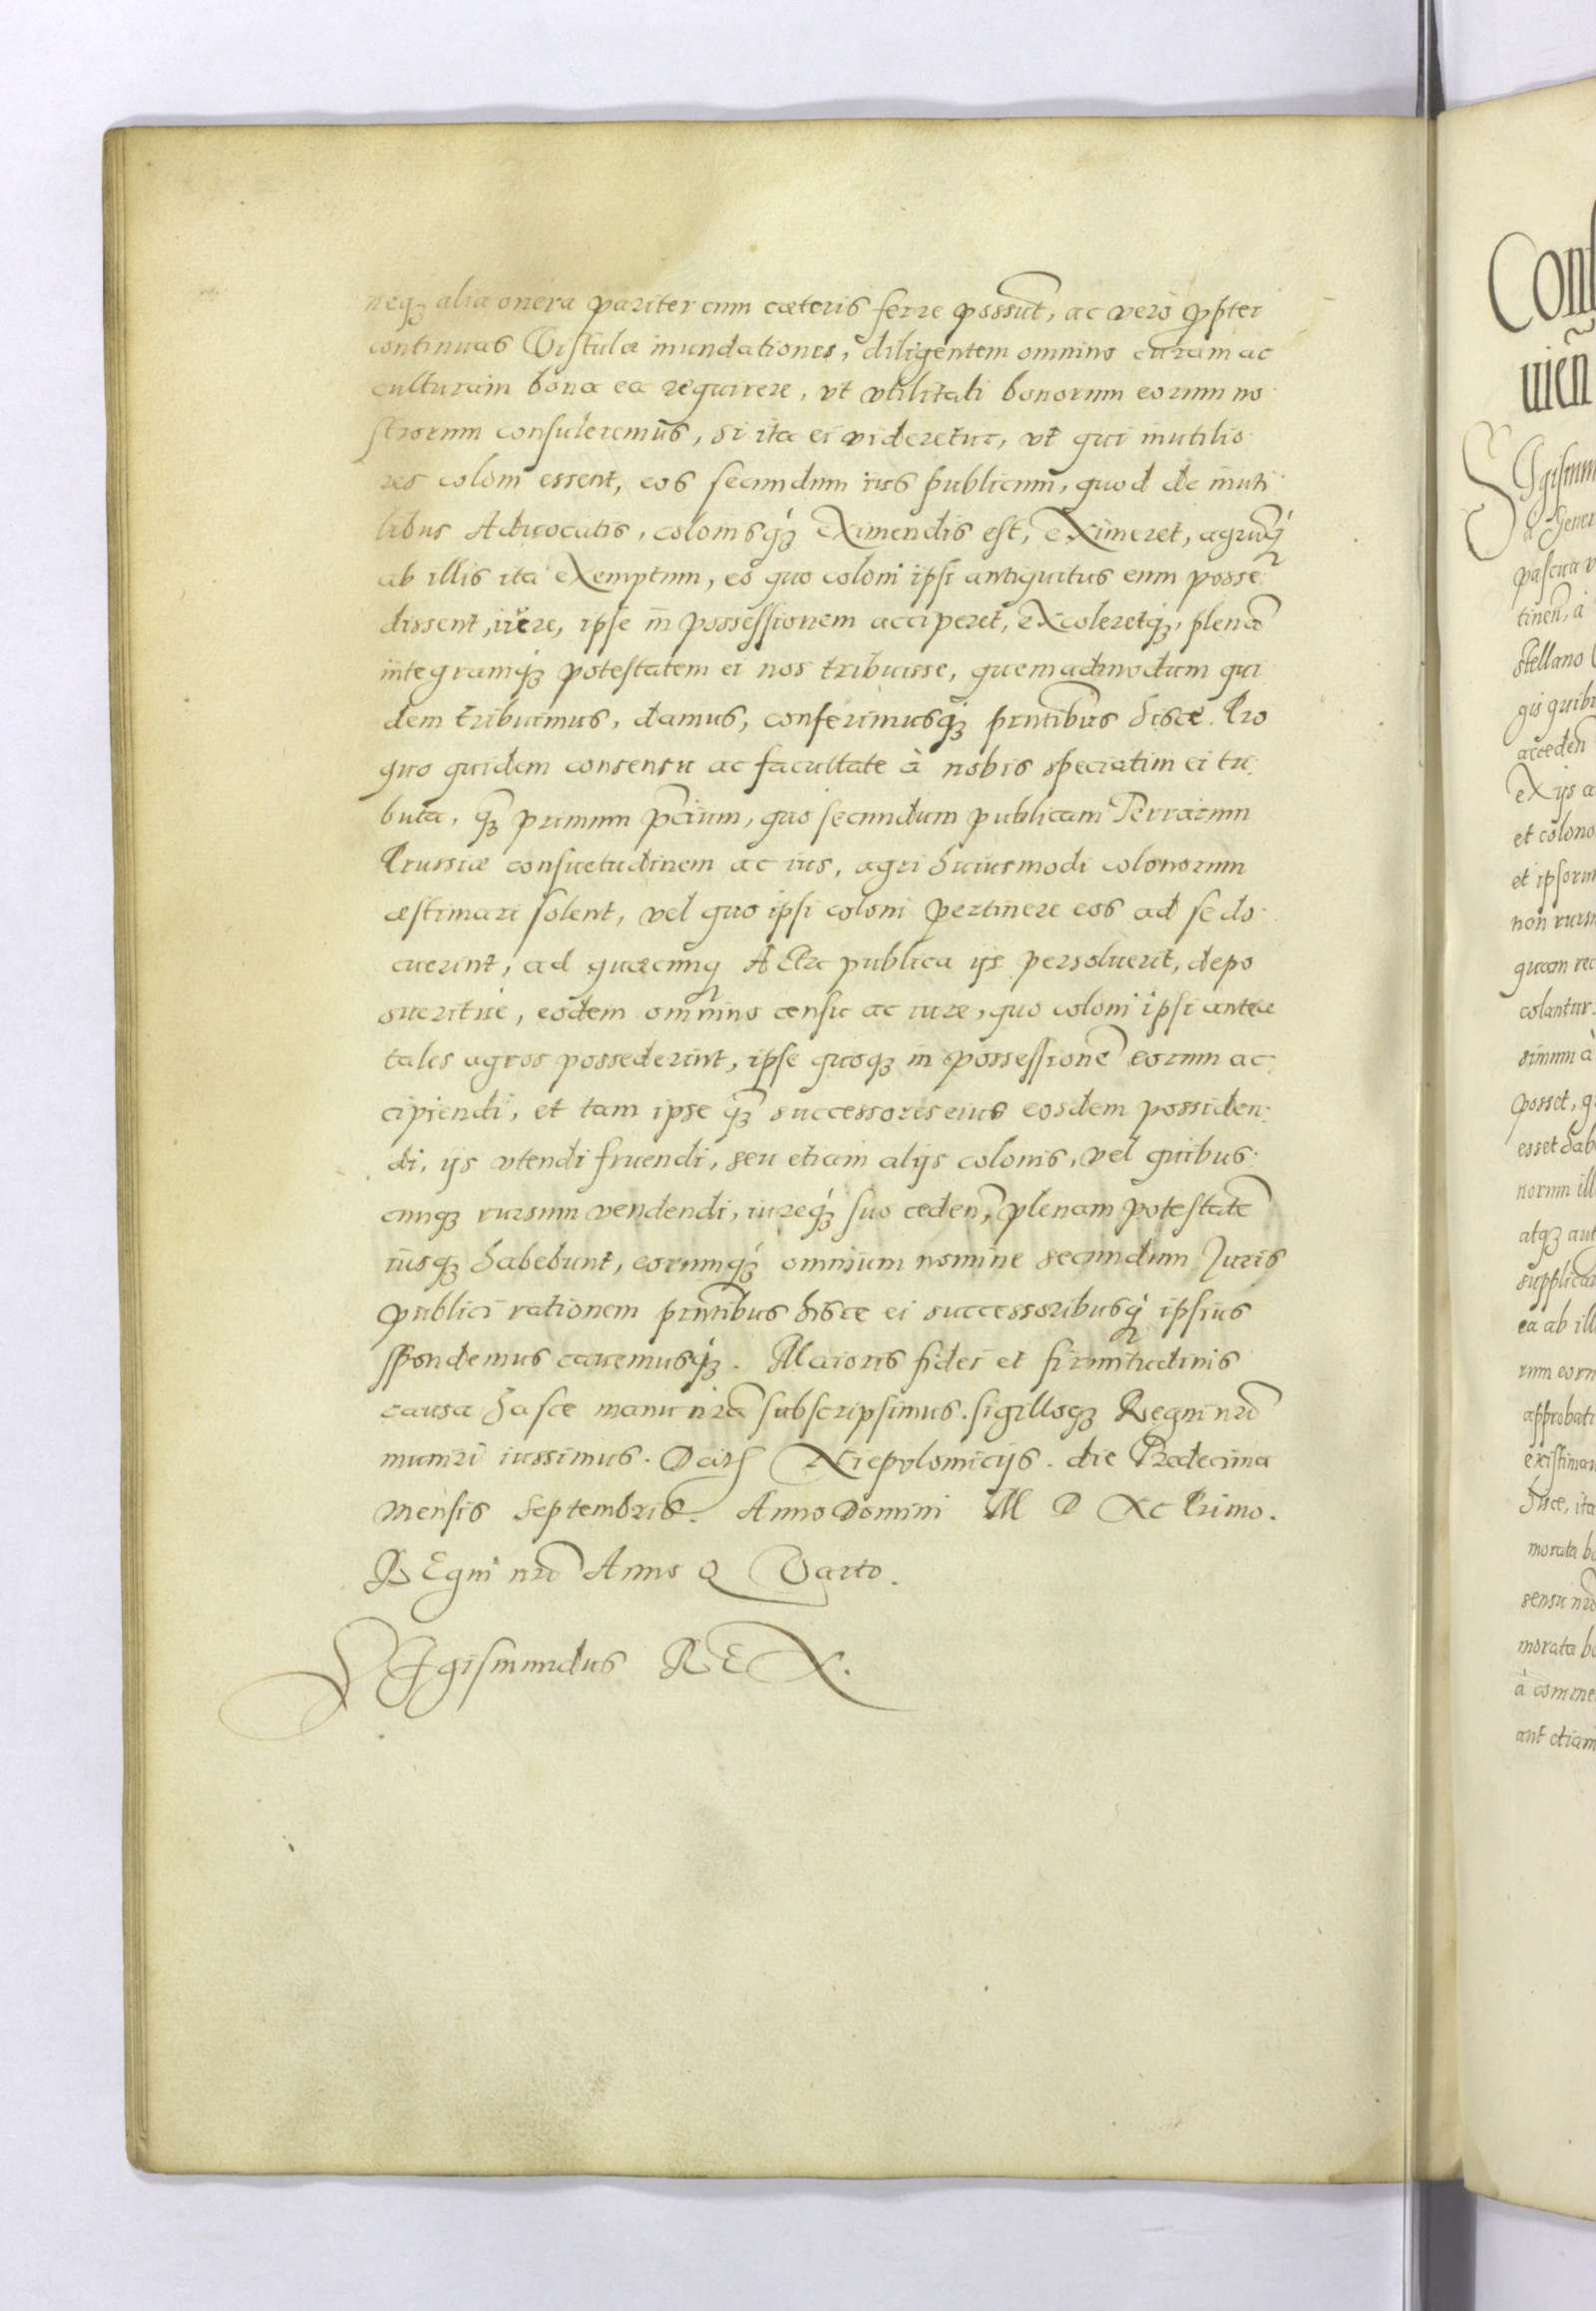 neqȝ alia onera pariter cum cæteris ferre possūt, ac vero ꝓpter
continuas Vistulæ inundationes, diligentem omnino curam ac
culturam bona ea requirere, vt vtilitati bonorum eorum no
strorum consuleremus, si ita ei videretur, vt qui inutilio
res coloni essent, eos secundum ius publicum, quod de inuti
libus Aduocatis, colonisqȝ eximendis est, eximeret, agrūq
ab illis ita exemptum, eo quo coloni ipsi antiquitus eum posse
dissent, iure, ipse in possessionem acciperet, excoleretqȝ, plenā
integramqȝ potestatem ei nos tribuisse, quemadmodum qui
dem tribuimus, damus, conferimusqȝ pn̄tibus hisce. Pro
quo quidem consensu ac facultate à nobis speciatim ei tri
buta, qȝ̄ primum p̄cium, quo secundum publicam Terrarum
Prussiæ consuetudinem ac ius, agri huiusmodi colonorum
æstimari solent, vel quo ipsi coloni pertinere eos ad se do
cuerint, ad quæcunq Acta publica ijs persoluerit, depo
sueritue, eodem omnino censu ac iure, quo coloni ipsi antea
tales agros possederint, ipse quoqȝ in possessionē eorum ac
cipiendi, et tam ipse qȝ̄ successores eius eosdem possiden
di, ijs vtendi fruendi, seu etiam alijs colonis, vel quibus
cunqȝ rursum vendendi, iureqȝ suo ceden̄, plenam potestatē
iusqȝ habebunt, eorumqȝ omnium nomine secundum Juris
publici rationem pn̄tibus hisce ei successoribusq ipsius
spondemus cauemusqȝ. Maioris fidei et firmitudinis
causa hasce manu nrā subscripsimus. sigilloqȝ Regni nrī
muniri iussimus. Datꝭ Niepolomicijs. die
mensis Septembris. Anno Domini M D XC Primo.
REgni nrī Anno QVarto.
SIgismundus REX.
Conf
uien̄
SIgismun
à Gener
pascua v
tinen̄, à
stellano
gis quibu
acceden
ex ijs a
et colono
et ipsorum
non rursu
quam rec
colantur.
simum à
posset, q
esset hab
norum ill
atqȝ aut
supplicar
ea ab ill
rum eoru
approbati
existiman
hisce, ita
morata bo
sensu nrō
morata bo
à comme
aut etiam